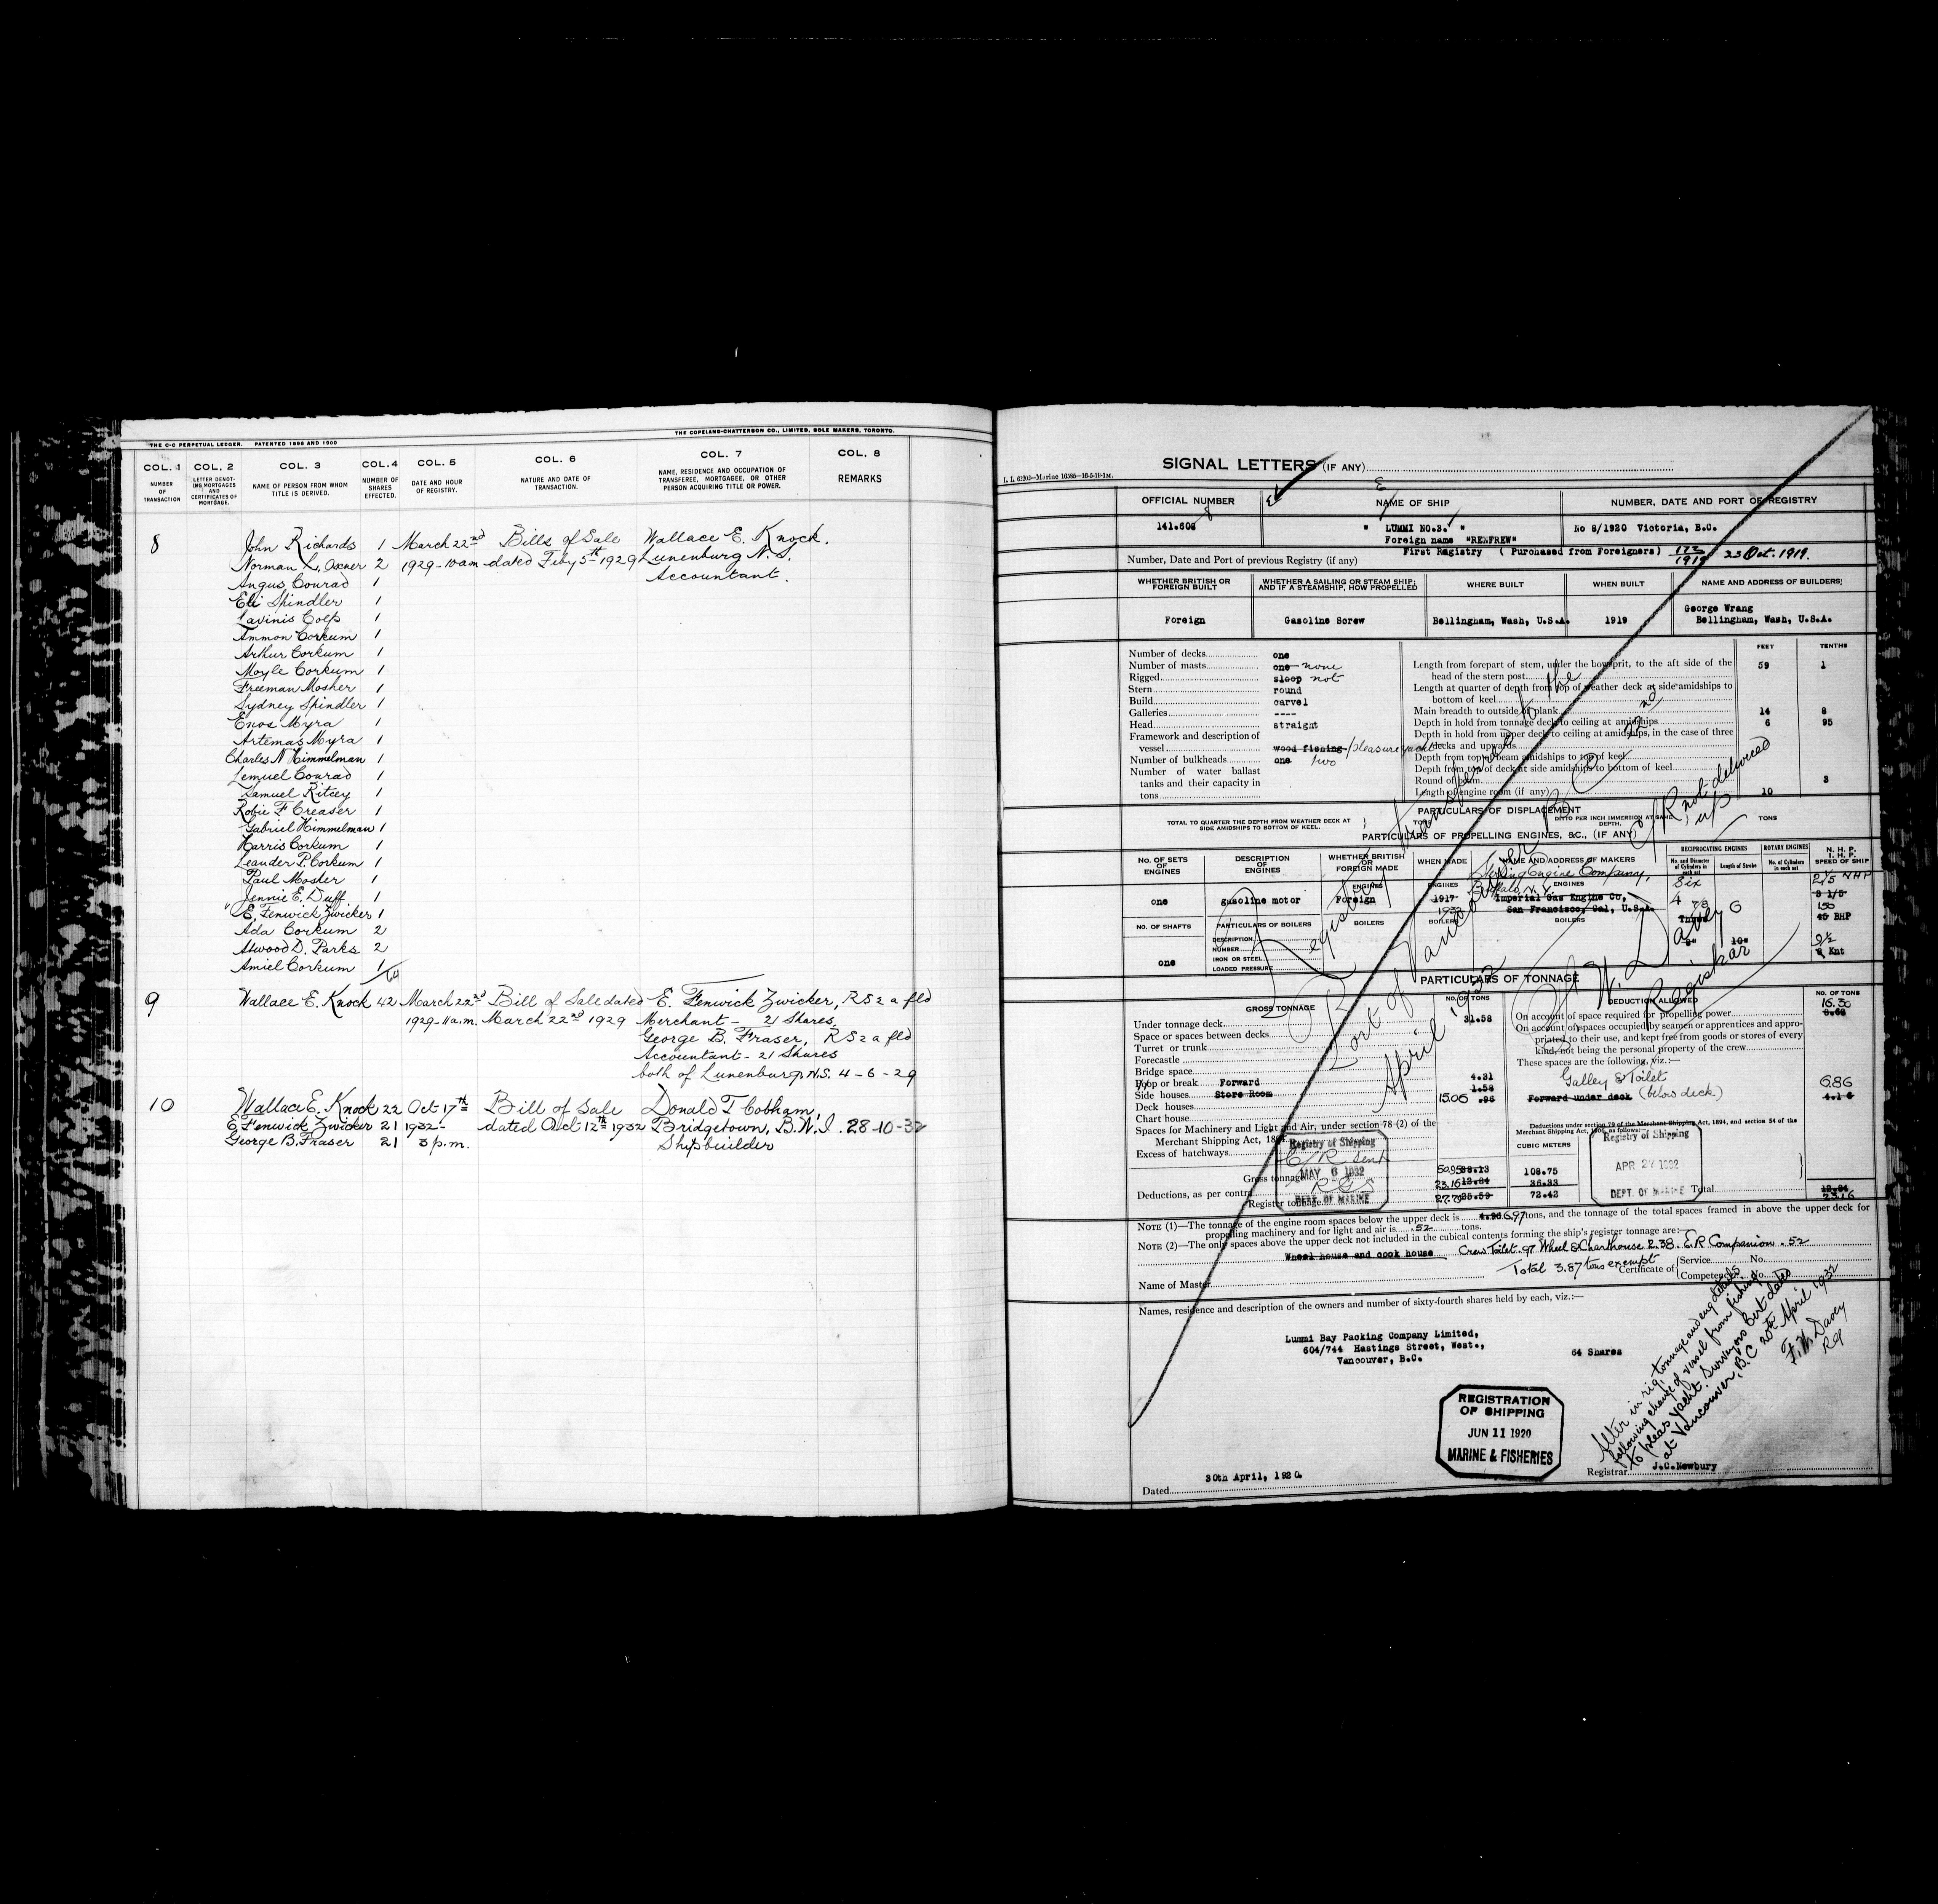 THE C-C PERPETUAL LEDGER. PATENTED 1898 AND 1900
THE COPELAND-CHATTERSON CO., LIMITED, SOLE MAKERS, TORONTO.
COL. 1 COL. 2 COL. 3 COL. 4 COL. 5 COL. 6 COL. 7 COL. 8
NUMBER OF TRANSACTION
LETTER DENOTING MORTGAGES AND CERTIFICATES OF MORTGAGE.
NAME OF PERSON FROM WHOM TITLE IS DERIVED.
NUMBER OF SHARES EFFECTED.
DATE AND HOUR OF REGISTRY.
NATURE AND DATE OF TRANSACTION.
NAME, RESIDENCE AND OCCUPATION OF TRANSFEREE, MORTGAGEE, OR OTHER PERSON ACQUIRING TITLE OR POWER.
REMARKS
8 John Richards 1 March 22nd Bills of Sale Wallace E. Knock.
Norman L. Oxner 2 1929-10am dated Feby 5th 1929 Lunenburg N.S.
Angus Conrad 1 Accountant.
Eli Spindler 1
Lavinis Colp 1
Ammon Corkum 1
Arthur Corkum 1
Moyle Corkum 1
Freeman Mosher 1
Sydney Spindler 1
Enos Myra 1
Artemas Myra 1
Charles N Himmelman 1
Lemuel Conrad 1
Samuel Ritcey 1
Robie F Creaser 1
Gabriel Himmelman 1
Harris Corkum 1
Leander P. Corkum 1
Paul Mosher 1
Jennie E. Duff 1
E. Fenwick Zwicker 1
Ada Corkum 2
Atwood D. Parks 2
Amiel Corkum 1/64
9 Wallace E. Knock 42 March 22nd Bill of Sale dated E. Fenwick Zwicker, RS2 a fld
1929-11a.m. March 22nd 1929 Merchant - 21 Shares,
George B. Fraser, RS2 a fld
Accountant - 21 Shares
both of Lunenburg N.S. 4-6-29
10 Wallace E. Knock 22 Oct 17th Bill of Sale Donald T Cobham,
E Fenwick Zwicker 21 1932- dated Oct 12th 1932 Bridgetown, B.W.I. 28-10-32
George B. Fraser 21 3 p.m. Shipbuilder
SIGNAL LETTERS (IF ANY)
I. L. 61203—Marine 16585—16-5-19-1M.
OFFICIAL NUMBER NAME OF SHIP NUMBER, DATE AND PORT OF REGISTRY
141.608 " LUMMI NO.3. " No 8/1920 Victoria, B.C.
Foreign name "RENFREW"
First Registry ( Purchased from Foreigners) 172/1919 23 Oct. 1919.
Number, Date and Port of previous Registry (if any)
WHETHER BRITISH OR FOREIGN BUILT
WHETHER A SAILING OR STEAM SHIP; AND IF A STEAMSHIP, HOW PROPELLED
WHERE BUILT
WHEN BUILT
NAME AND ADDRESS OF BUILDERS
Foreign Gasoline Screw Bellingham, Wash, U.S.A. 1919 George Wrang
Bellingham, Wash, U.S.A.
Number of decks one
Number of masts one none
Rigged sloop not
Stern round
Build carvel
Galleries ----
Head straight
Framework and description of
vessel wood fishing / pleasure yacht
Number of bulkheads one two
Number of water ballast
tanks and their capacity in
tons
FEET TENTHS
Length from forepart of stem, under the bowsprit, to the aft side of the
head of the stern post 59 1
Length at quarter of depth from top of weather deck at side amidships to
bottom of keel
Main breadth to outside of plank 14 8
Depth in hold from tonnage deck to ceiling at amidships 6 95
Depth in hold from upper deck to ceiling at amidships, in the case of three
decks and upwards
Depth from top of beam amidships to top of keel
Depth from top of deck at side amidships to bottom of keel
Round of beam 3
Length of engine room (if any) 10
PARTICULARS OF DISPLACEMENT
TOTAL TO QUARTER THE DEPTH FROM WEATHER DECK AT SIDE AMIDSHIPS TO BOTTOM OF KEEL.
DITTO PER INCH IMMERSION AT SAME DEPTH.
TONS
PARTICULARS OF PROPELLING ENGINES, &C., (IF ANY)
NO. OF SETS OF ENGINES
DESCRIPTION OF ENGINES
WHETHER BRITISH OR FOREIGN MADE
WHEN MADE
NAME AND ADDRESS OF MAKERS
RECIPROCATING ENGINES
ROTARY ENGINES
N. H. P.
I. H. P.
SPEED OF SHIP
No. and Diameter of Cylinders in each set
Length of Stroke
No. of Cylinders in each set
Sterling Engine Company,
Buffalo, N.Y.
ENGINES ENGINES ENGINES
one gasoline motor Foreign 1917 Imperial Gas Engine Co,
1932 San Francisco, Cal, U.S.A.
BOILERS BOILERS BOILERS
Six
10"
6
3 1/5
150
45 BHP
9½
8 Knt
NO. OF SHAFTS PARTICULARS OF BOILERS
DESCRIPTION
NUMBER
IRON OR STEEL
LOADED PRESSURE
one
PARTICULARS OF TONNAGE
GROSS TONNAGE NO. OF TONS DEDUCTION ALLOWED NO. OF TONS
Under tonnage deck 31.58
Space or spaces between decks
Turret or trunk
Forecastle
Bridge space
Poop or break Forward 4.31
Side houses Store Room 1.58
Deck houses 15.05 .96
Chart house
Spaces for Machinery and Light and Air, under section 78 (2) of the
Merchant Shipping Act, 1894
Excess of hatchways
Gross tonnage 108.75
Deductions, as per contra 23.16 12.84 36.33
Register tonnage 25.59 72.42
CUBIC METERS
On account of space required for propelling power 16.30
On account of spaces occupied by seamen or apprentices and appro-
priated to their use, and kept free from goods or stores of every
kind, not being the personal property of the crew
These spaces are the following, viz.:—
Galley & Toilet
Forward under deck (below deck) 6.86
Deductions under section 79 of the Merchant Shipping Act, 1894, and section 54 of the
Merchant Shipping Act, 1906, as follows:—
Total 12.84
23.16
Registry of Shipping
C/R Sent
MAY 6 1932
RGS
DEPT. OF MARINE
Registry of Shipping
APR 27 1932
DEPT. OF MARINE
NOTE (1)—The tonnage of the engine room spaces below the upper deck is 6.97 tons, and the tonnage of the total spaces framed in above the upper deck for
propelling machinery and for light and air is .52 tons.
NOTE (2)—The only spaces above the upper deck not included in the cubical contents forming the ship's register tonnage are:—
Wheel house and cook house Crew Toilet .97 Wheel & Charthouse 2.38. E.R Companion .52
Total 3.87 tons exempt
Name of Master
Certificate of Service No.
Competency No.
Names, residence and description of the owners and number of sixty-fourth shares held by each, viz.:—
Lummi Bay Packing Company Limited,
604/744 Hastings Street, West.,
Vancouver, B.C.
64 Shares
REGISTRATION
OF SHIPPING
JUN 11 1920
MARINE & FISHERIES
30th April, 1920.
Dated
Registrar J.C.Newbury
Registry transferred to the
Port of Vancouver B C 22nd
April 1932
C/R not delivered up
F W Davey
Registrar
Alter in rig, tonnage and eng details
following change of vessel from fishing
to pleas yacht. Surveyors Cert dated
at Vancouver, B.C 20th April 1932
F. W. Davey
Rg